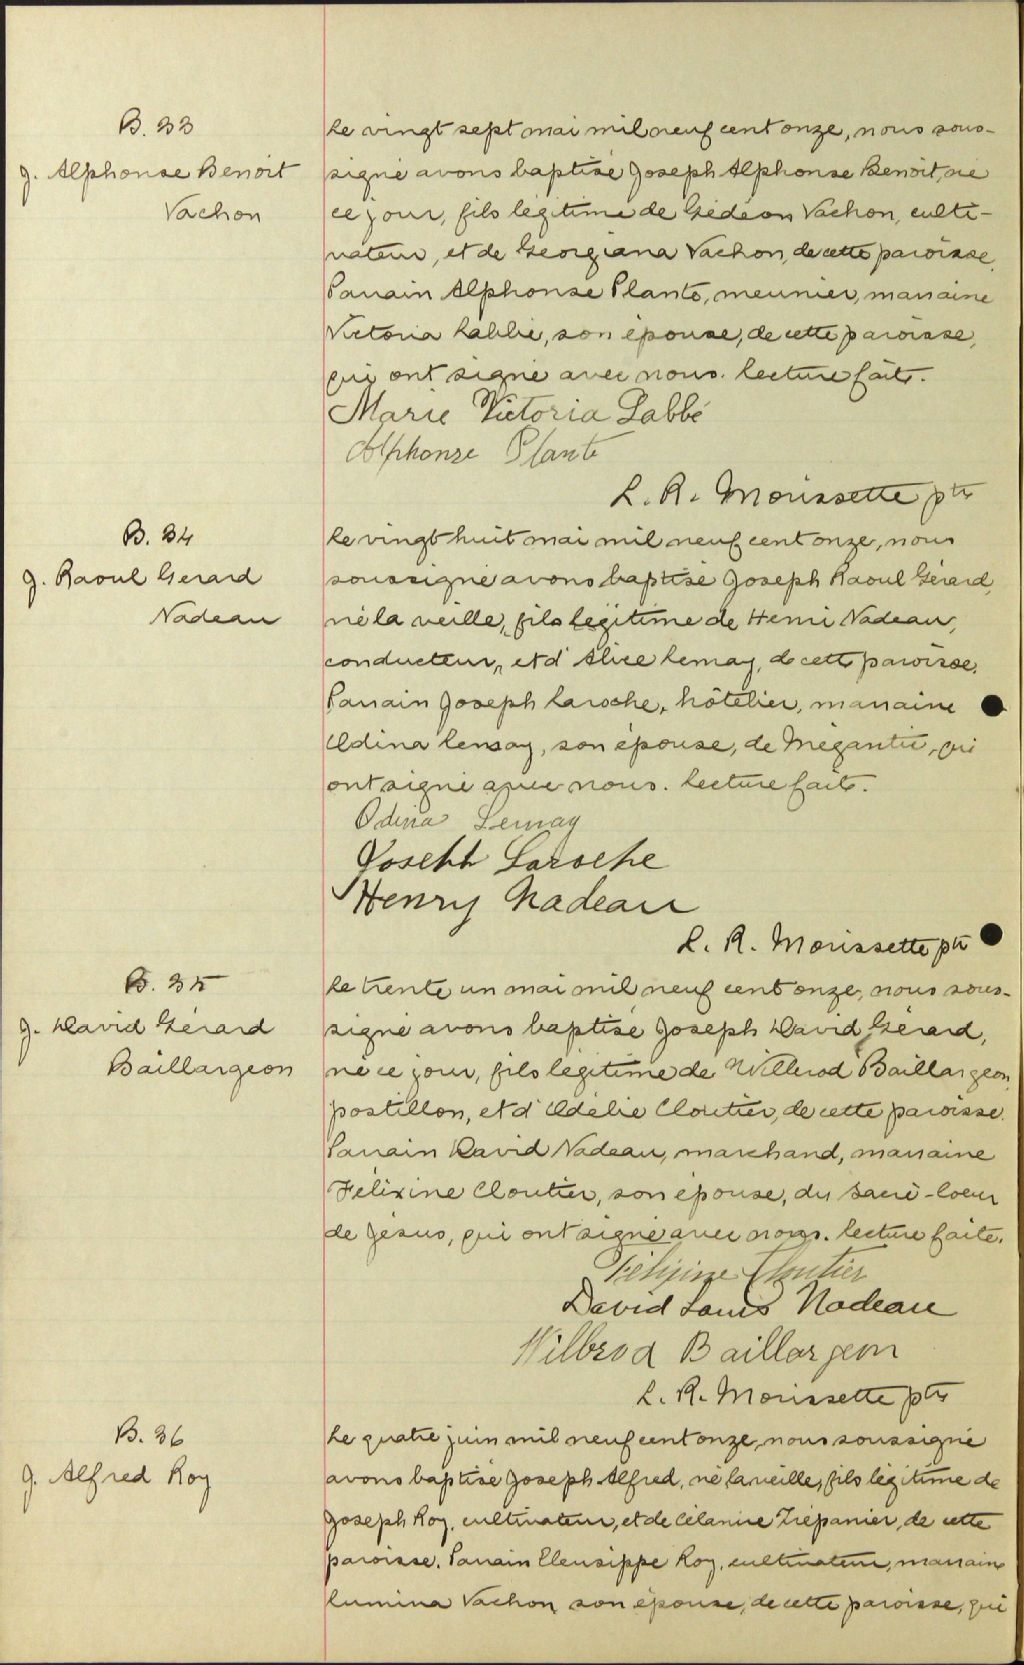 B. 33
J. Alphonse Benoit
Vachon
Le vingt sept mai mil neuf cent onze, nous sous-
signé avons baptisé Joseph Alphonse Benoît, né
ce jour, fils légitime de Gédéon Vachon, culti-
vateur, et de Georgiana Vachon, de cette paroisse.
Parrain Alphonse Plante, meunier, marraine
Victoria Labbé, son épouse, de cette paroisse,
qui ont signé avec nous. Lecture faite.
Marie Victoria Labbé
Alphonse Plante
L. R. Morissette ptre
B. 34
J. Raoul Gerard
Nadeau
Le vingt huit mai mil neuf cent onze, nous
soussigné avons baptisé Joseph Raoul Gérard,
né la veille, fils légitime de Henri Nadeau,
conducteur, et d'Alice Lemay, de cette paroisse.
Parrain Joseph Laroche, hôtelier, marraine
Odina Lemay, son épouse, de Mégantic, qui
ont signé avec nous. Lecture faite.
Odina Lemay
Joseph Laroche
Henry Nadeau
L. R. Morissette ptr
B. 35
J. David Gérard
Baillargeon
Le trente un mai mil neuf cent onze, nous sous-
signé avons baptisé Joseph David Gérard,
né ce jour, fils légitime de Willbrod Baillargeon,
postillon, et d'Adélie Cloutier, de cette paroisse.
Parrain David Nadeau, marchand, marraine
Félixine Cloutier, son épouse, du Sacré-Coeur
de Jésus, qui ont signé avec nous. Lecture faite.
Félixine Cloutier
David Louis Nadeau
Wilbrod Baillargeon
L. R. Morissette ptre
B. 36
J. Alfred Roy
Le quatre juin mil neuf cent onze, nous soussigné
avons baptisé Joseph Alfred, né la veille, fils légitime de
Joseph Roy, cultivateur, et de Célanire Trépanier, de cette
paroisse. Parrain Eleusippe Roy, cultivateur, marraine
Lumina Vachon son épouse, de cette paroisse, qui